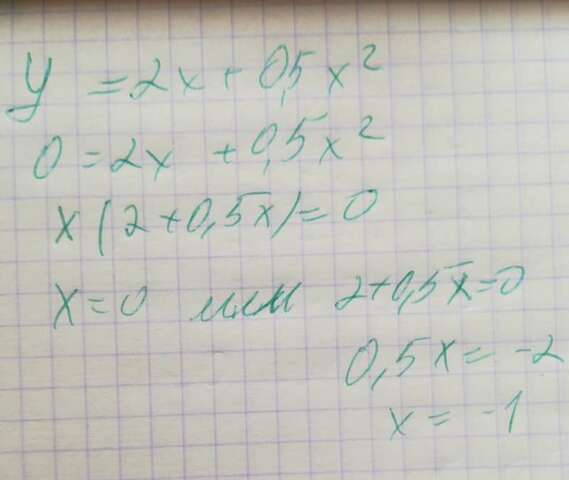 y = 2x + 0,5x²
0 = 2x + 0,5x²
x(2+0,5x) = 0
x = 0 или 2+0,5x=0
0,5x = -2
x = -1